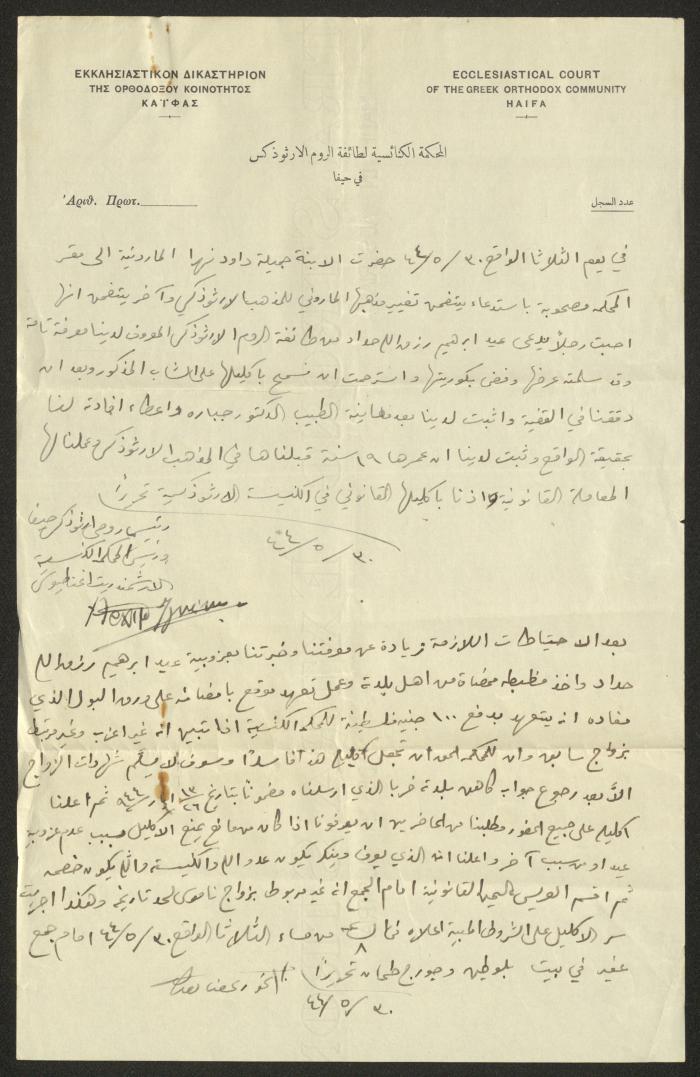 ΕΚΚΛΗΣΙΑΣΤΙΚΟΝ ΔΙΚΑΣΤΗΡΙΟΝ
ΤΗΣ ΟΡΘΟΔΟΞΟΥ ΚΟΙΝΟΤΗΤΟΣ
ΚΑΪΦΑΣ
ECCLESIASTICAL COURT
OF THE GREEK ORTHODOX COMMUNITY
HAIFA
المحكمة الكنائسية لطائفة الروم الارثوذكس
في حيفا
Ἀριθ. Πρωτ.
عدد السجل
في يوم الثلاثا الواقع ٣٠/٥/٤٤ حضرت الابنة جميلة داود نهرا المارونية الى مقر
المحكمة مصحوبة باستدعاء يتضمن تغيير مذهبها الماروني للمذهب الارثوذكسي وآخر يتضمن انها
احبت رجلاً يدعى عيد ابرهيم رزق الله حداد من طائفة الروم الارثوذكس المعروف لدينا معرفة تامة
وقد سلمته عرضها وفض بكوريتها واسترحمت ان نسمح باكليلها على الشاب المذكور وبعد ان
دققنا في القضية واثبت لدينا بعد معاينة الطبيب الدكتور جباره واعطاء افادة لنا
بحقيقة الواقع وثبت لدينا ان عمرها ١٩ سنة قبلناها في المذهب الارثوذكسي وعملنا لها
المعاملة القانونية واذنا باكليلها القانوني في الكنيسة الارثوذكسية تحريرًا
٣٠/٥/٤٤
رئيس روحي ارثوذكس حيفا
ورئيس المحكمة الكنسية
الارشمندريت اغناطيوس
بعد الاحتياطات اللازمة وزيادة عن معرفتنا وخبرتنا بعزوبية عيد ابرهيم رزق الله
حداد واخذ مضبطة ممضاة من اهل بلدة وعمل تعهد موقع بامضائه على ورق البول الذي
مفاده انه يتعهد بدفع ١٠٠ جنيه فلسطينية للمحكمة الكنسية اذا تبين انه غير اعزب وغير مرتبط
بزواج سابق وان للمحكمة الحق ان تجعل اكليله هذا فاسدًا وسوف لا يسلم شهادات الزواج
الا بعد رجوع جواب كاهن بلدة خربا الذي ارسلناه مضمونًا بتاريخ ثم اعلنا
اكليله على جميع الحضور وطلبنا من الحاضرين ان يعرفونا اذا كان من مانع يمنع الاكليل بسبب عدم عزوبية
عيد او من سبب آخر واعلنا انه الذي يعرف وينكر يكون عدو الله والكنيسة والله يكون خصمه
ثم اقسم العريس اليمين القانونية امام الجمع انه غير مربوط بزواج ناموسي لحد تاريخه وهكذا اجريت
سر الاكليل على الشروط المبينة اعلاه الساعة ٨ من مساء الثلاثا الواقع ٣٠/٥/٤٤ امام جمع
غفير في بيت وجورج طحان تحريرًا
٣٠/٥/٤٤
الخوري